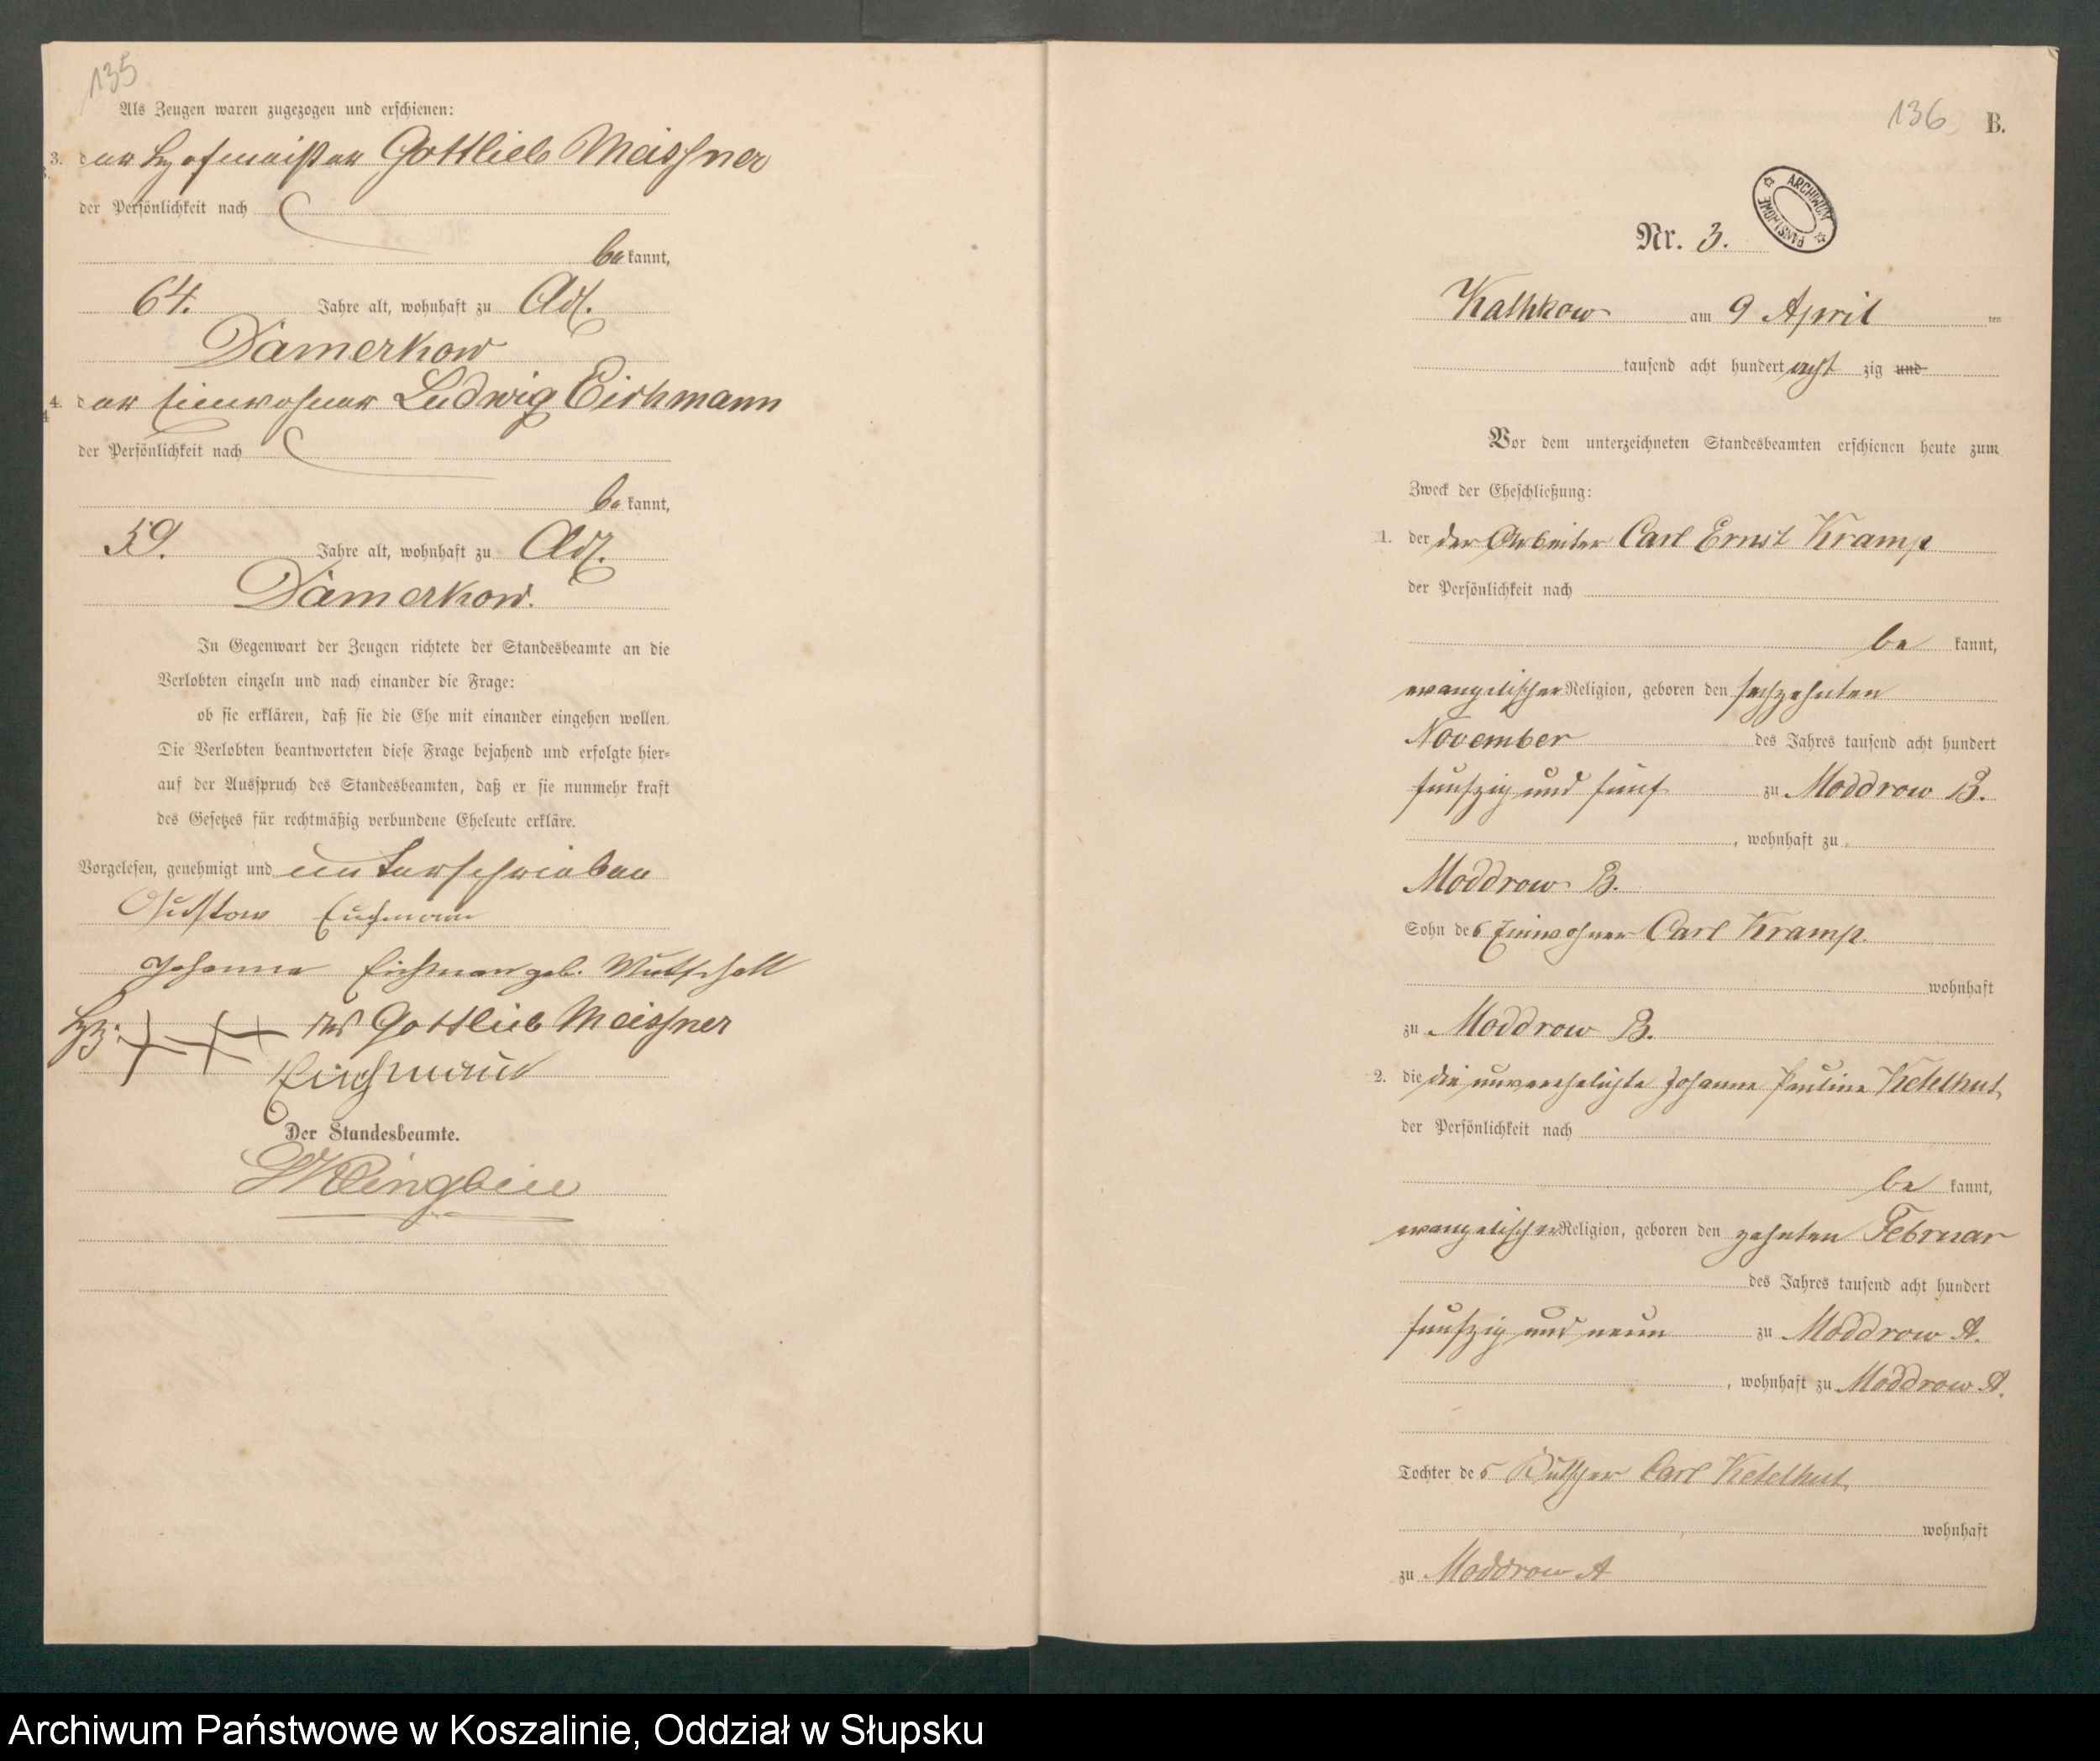 135
Als Zeugen waren zugezogen und erschienen:
3. der Hofmeister Gottlieb Meissner
der Persönlichkeit nach
be kannt,
64. Jahre alt, wohnhaft zu Adl.
Damerkow
4. der Einwohner Ludwig Eichmann
der Persönlichkeit nach
be kannt,
59. Jahre alt, wohnhaft zu Adl.
Damerkow.
In Gegenwart der Zeugen richtete der Standesbeamte an die
Verlobten einzeln und nach einander die Frage:
ob sie erklären, daß sie die Ehe mit einander eingehen wollen.
Die Verlobten beantworteten diese Frage bejahend und erfolgte hier-
auf der Ausspruch des Standesbeamten, daß er sie nunmehr kraft
des Gesetzes für rechtmäßig verbundene Eheleute erkläre.
Vorgelesen, genehmigt und unterschrieben
Gustow Euchmann
Johanna Eichman geb. Mutschall
Hz. +++ des Gottlieb Meissner
Eichmann
Der Standesbeamte.
136 B.
ARCHIWUM PAŃSTWOWE
Nr. 3.
Kathkow am 9 April ten
tausend acht hundert acht zig und
Vor dem unterzeichneten Standesbeamten erschienen heute zum
Zweck der Eheschließung:
1. der der Arbeiter Carl Ernst Kramp
der Persönlichkeit nach
be kannt,
evangelischer Religion, geboren den sechzehnten
November des Jahres tausend acht hundert
funfzig und fünf zu Moddrow B.
, wohnhaft zu
Moddrow B.
Sohn des Einwohner Carl Kramp.
wohnhaft
zu Moddrow B.
2. die die unverehelichte Johanne Pauline Ketelhut,
der Persönlichkeit nach
be kannt,
evangelischer Religion, geboren den zehnten Februar
des Jahres tausend acht hundert
funfzig und neun zu Moddrow A.
, wohnhaft zu Moddrow A.
Tochter des Carl Ketelhut,
wohnhaft
zu Moddrow A
Archiwum Państwowe w Koszalinie, Oddział w Słupsku